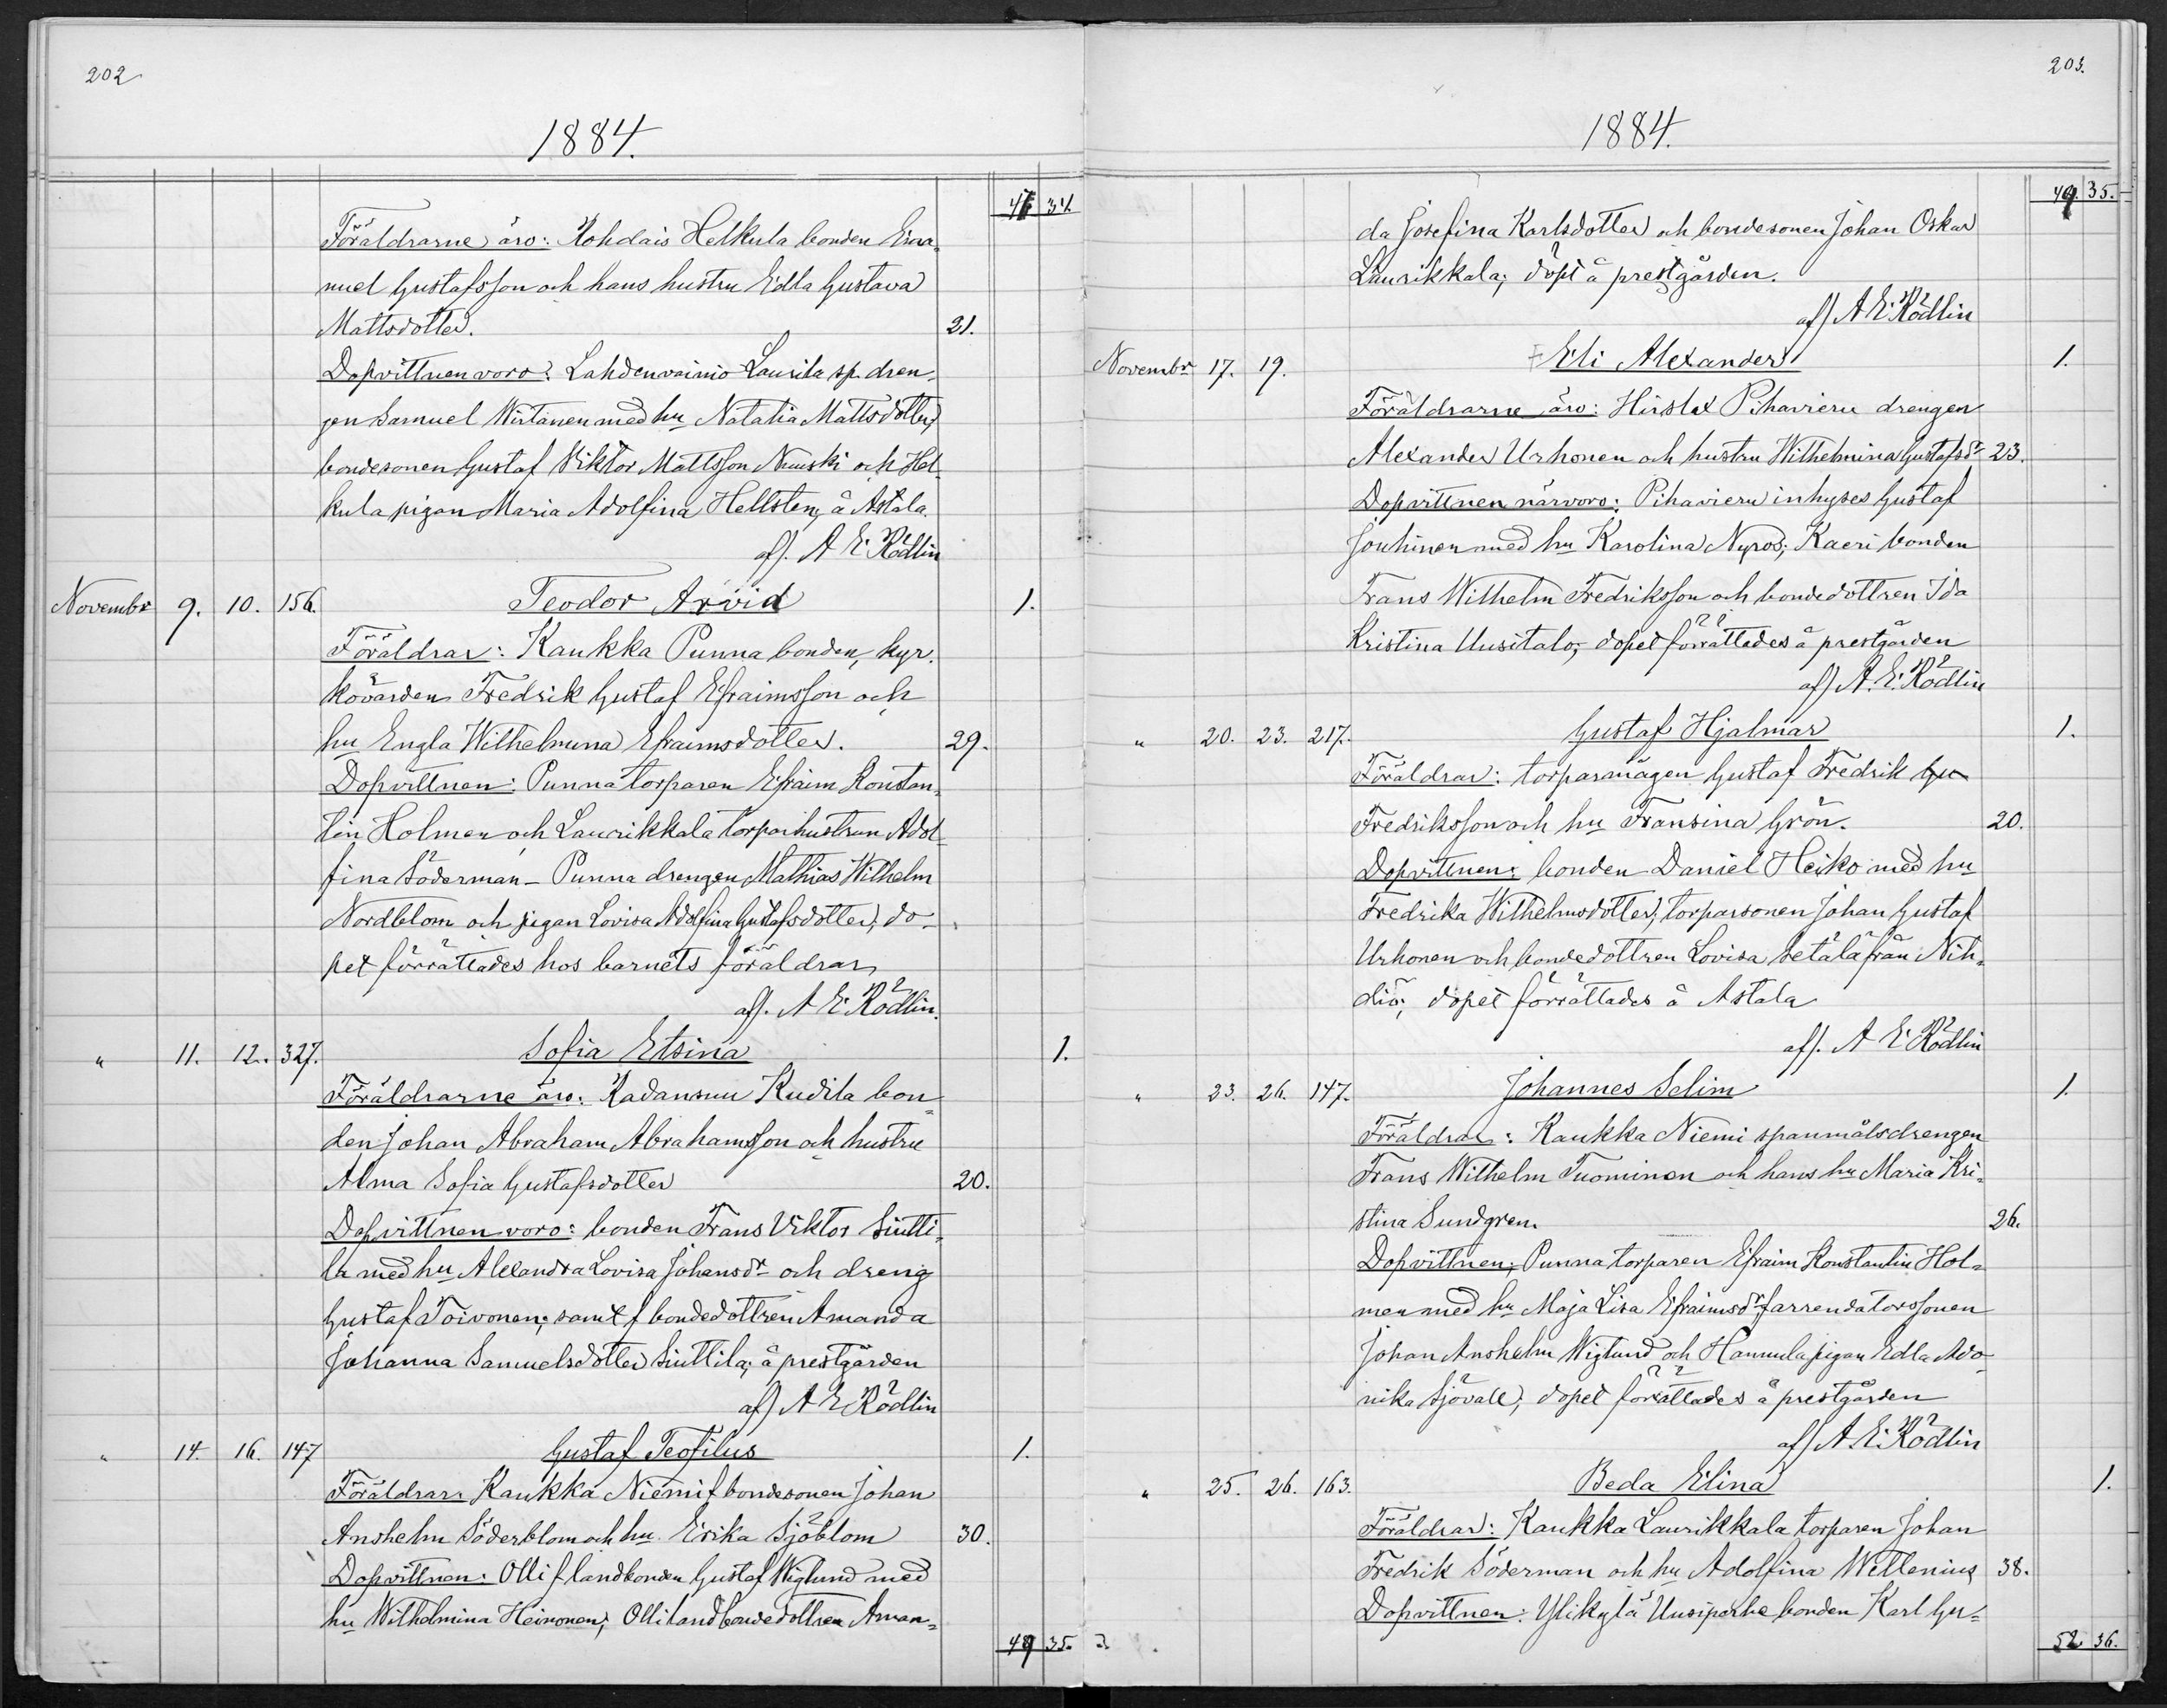 202
1884.
47 34.
Föräldrarne äro: Kohdais Helkula bonden Ema-
nuel Gustafsson och hans hustru Edla Gustava
Mattsdotter. 21.
Dopvittnen voro: Lahdenvainio Laurila sp. dren-
gen Samuel Wirtanen med hu Natalia Mattsdotter,
bondesonen Gustaf Viktor Mattsson Nuuski och Hel-
kula pigan Maria Adolfina Hellsten, å Astala.
af/. A E Rödlin
Novembr 9. 10. 156. Teodor Arvid 1.
Föräldrar: Kaukka Punna bonden, kyr-
kovärden Fredrik Gustaf Efraimsson och
hu Engla Wilhelmina Efraimsdotter. 29.
Dopvittnen: Punna torparen Efraim Konstan-
tin Holmen och Laurikkala torparhustrun Adol-
fina Söderman - Punna drengen Mathias Wilhelm
Nordblom och pigan Lovisa Adolfina Gustafsdotter; do-
pet förrättades hos barnets föräldrar
af/. A E Rödlin.
" 11. 12. 327. Sofia Etsina 1.
Föräldrarne äro: Kadansuu Kudila bon-
den Johan Abraham Abrahamsson och hustru
Alma Sofia Gustafsdotter 20.
Dopvittnen voro: bonden Frans Viktor Siutti-
la med hu Alexandra Lovisa Johansdr och dreng
Gustaf Toivonen; samt f bondedottren Amanda
Johanna Samuelsdotter Siuttila; å prestgården
af/ A E Rödlin
" 14. 16. 147 Gustaf Teofilus 1.
Föräldrar: Kaukka Niemi f bondesonen Johan
Anshelm Söderblom och hu Erika Sjöblom 30.
Dopvittnen: Olli f landbonden Gustaf Wiglund med
hu Wilhelmina Heinonen; Olli landbondedottren Aman-
49 35.
203.
1884.
49. 35.
da Josefina Karlsdotter och bondesonen Johan Oskar
Laurikkala; döpt å prestgården.
af/ A E Rödlin
Novembr 17. 19. Eli Alexander 1.
Föräldrarne äro: Pihavieru drengen
Alexander Urhonen och hustru Wilhelmina Gustafsdr 23.
Dopvittnen närvoro: Pihavieru inhyses Gustaf
Jouhinen med hu Karolina Nyroos; Kaeri bonden
Frans Wilhelm Fredriksson och bondedottren Ida
Kristina Uusitalo; dopet förrättades å prestgården
af/ A. E. Rödlin
" 20. 23. 217. Gustaf Hjalmar 1.
Föräldrar: torparmågen Gustaf Fredrik Gu
Fredriksson och hu Fransina Grön. 20.
Dopvittnen: bonden Daniel Heiko med hu
Fredrika Wilhelmsdotter; torparsonen Johan Gustaf
Urhonen och bondedottren Lovisa Setälä från Nih-
diö; dopet förrättades å Astala
af/. A E Rödlin
" 23. 26. 147. Johannes Selim 1.
Föräldrar: Kaukka Niemi spanmålsdrengen
Frans Wilhelm Tuominen och hans hu Maria Kri-
stina Sundgren. 26.
Dopvittnen; Punna torparen Efraim Konstantin Hol-
men med hu Maja Lisa Efraimsdr f arrendatorssonen
Johan Anshelm Wiglund och Hannula pigan Edla Ado-
nika Sjövall; dopet förrättades å prestgården
af/ A. E. Rödlin
" 25. 26. 163. Beda Elina 1.
Föräldrar: Kaukka Laurikkala torparen Johan
Fredrik Söderman och hu Adolfina Wettenius 38.
Dopvittnen: Ylikylä Uusiperhe bonden Karl Gu-
52 36.